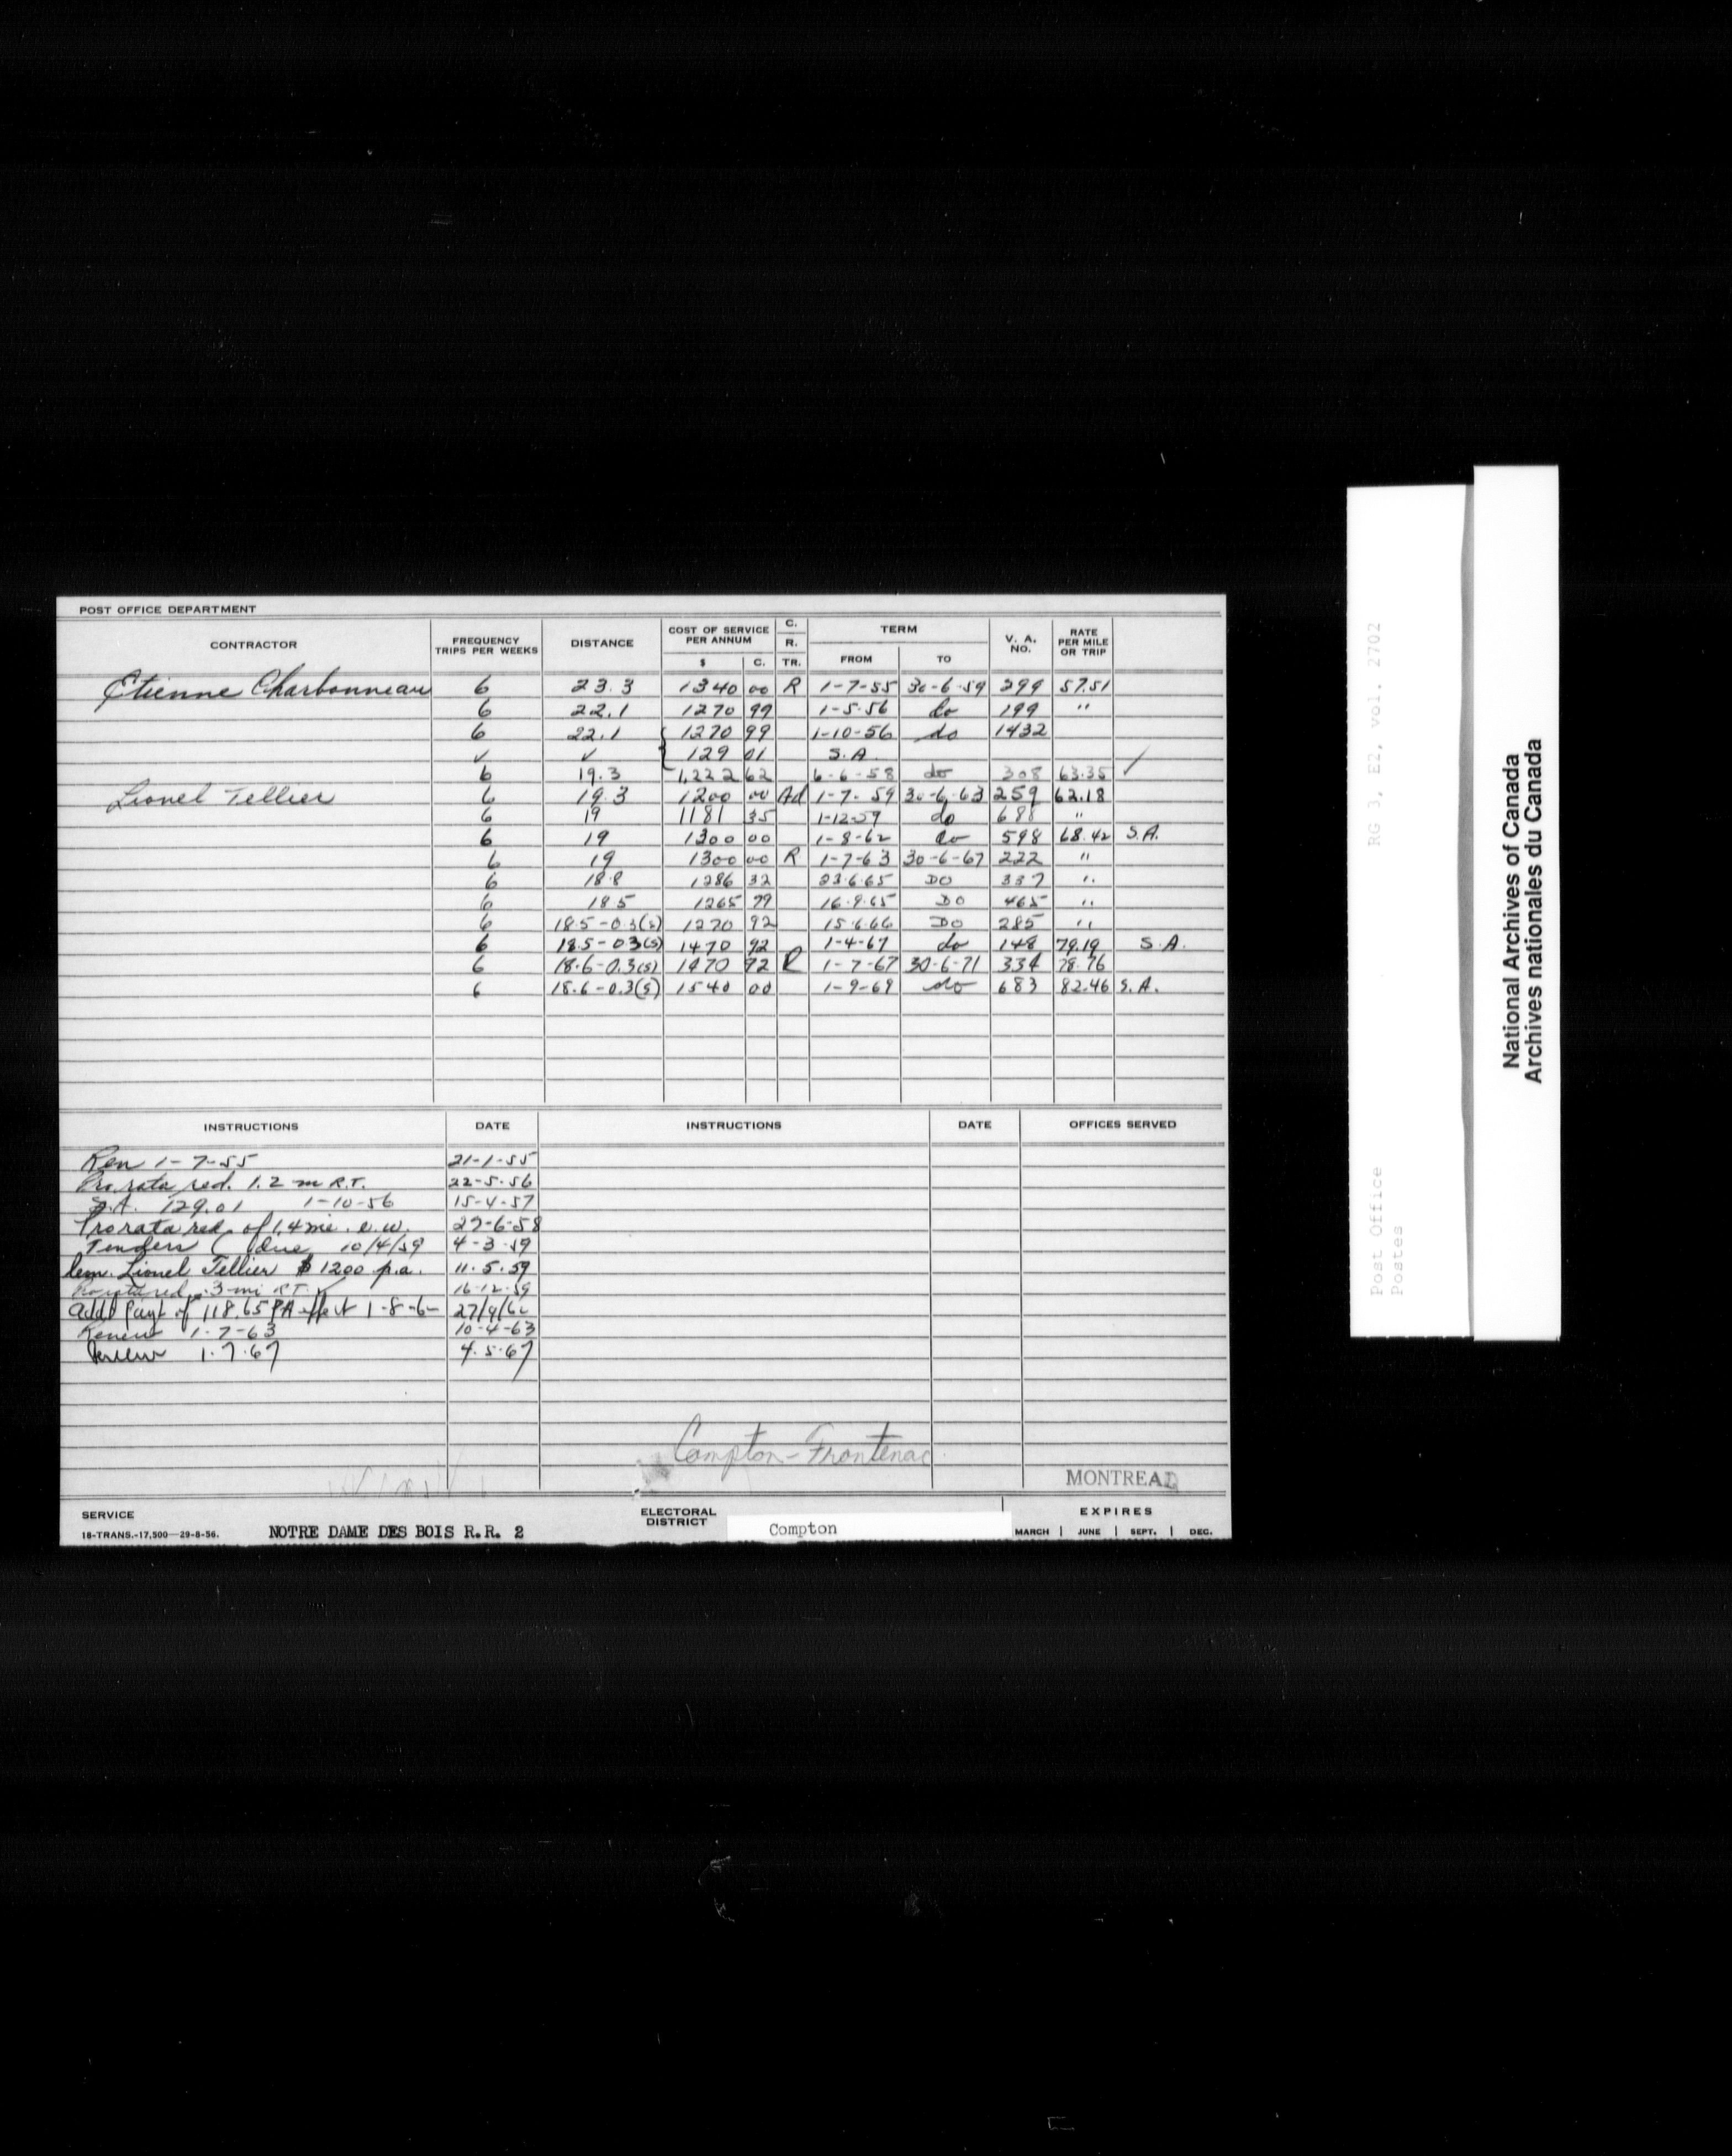 POST OFFICE DEPARTMENT
CONTRACTOR FREQUENCY TRIPS PER WEEKS DISTANCE COST OF SERVICE PER ANNUM $ C. C. R. TR. TERM FROM TO V. A. NO. RATE PER MILE OR TRIP
Etienne Charbonneau 6 23.3 1340 00 R 1-7-55 30-6-59 299 57.51
6 22.1 1270 99 1-5-56 do 199 "
6 22.1 1270 99 1-10-56 do 1432
✓ ✓ 129 01 S.A.
6 19.3 1,222 62 6-6-58 do 308 63.35 ✓
Lionel Tellier 6 19.3 1200 00 Ad 1-7-59 30-6-63 259 62.18
6 19 1181 35 1-12-59 do 688 "
6 19 1300 00 1-8-62 do 598 68.42 S.A.
6 19 1300 00 R 1-7-63 30-6-67 222 "
6 18.8 1286 32 23.6.65 DO 337 "
6 18.5 1265 79 16.9.65 DO 465 "
6 18.5-0.3(s) 1270 92 15.6.66 DO 285 "
6 18.5-03(s) 1470 92 1-4-67 do 148 79.19 S.A.
6 18.6-0.3(s) 1470 92 R 1-7-67 30-6-71 334 78.76
6 18.6-0.3(s) 1540 00 1-9-69 do 683 82.46 S.A.
INSTRUCTIONS DATE INSTRUCTIONS DATE OFFICES SERVED
Ren 1-7-55 21-1-55
Pro. rata red. 1.2 m R.T. 22-5-56
S.A. 129.01 1-10-56 15-4-57
Pro rata red. of 1.4 mi. e.w. 27-6-58
Tenders due 10/4/59 4-3-59
Lionel Tellier $1200 p.a. 11.5.59
Pro rata red. .3 mi R.T. 16-12-59
Addl Payt of 118.65 PA effect 1-8-62 27/9/62
Renew 1-7-63 10-4-63
Renew 1.7.67 4.5.67
Compton-Frontenac
MONTREAL
SERVICE ELECTORAL DISTRICT EXPIRES
18-TRANS.-17,500—29-8-56. NOTRE DAME DES BOIS R.R. 2 Compton MARCH | JUNE | SEPT. | DEC.
RG 3, E2, vol. 2702
Post Office
Postes
National Archives of Canada
Archives nationales du Canada